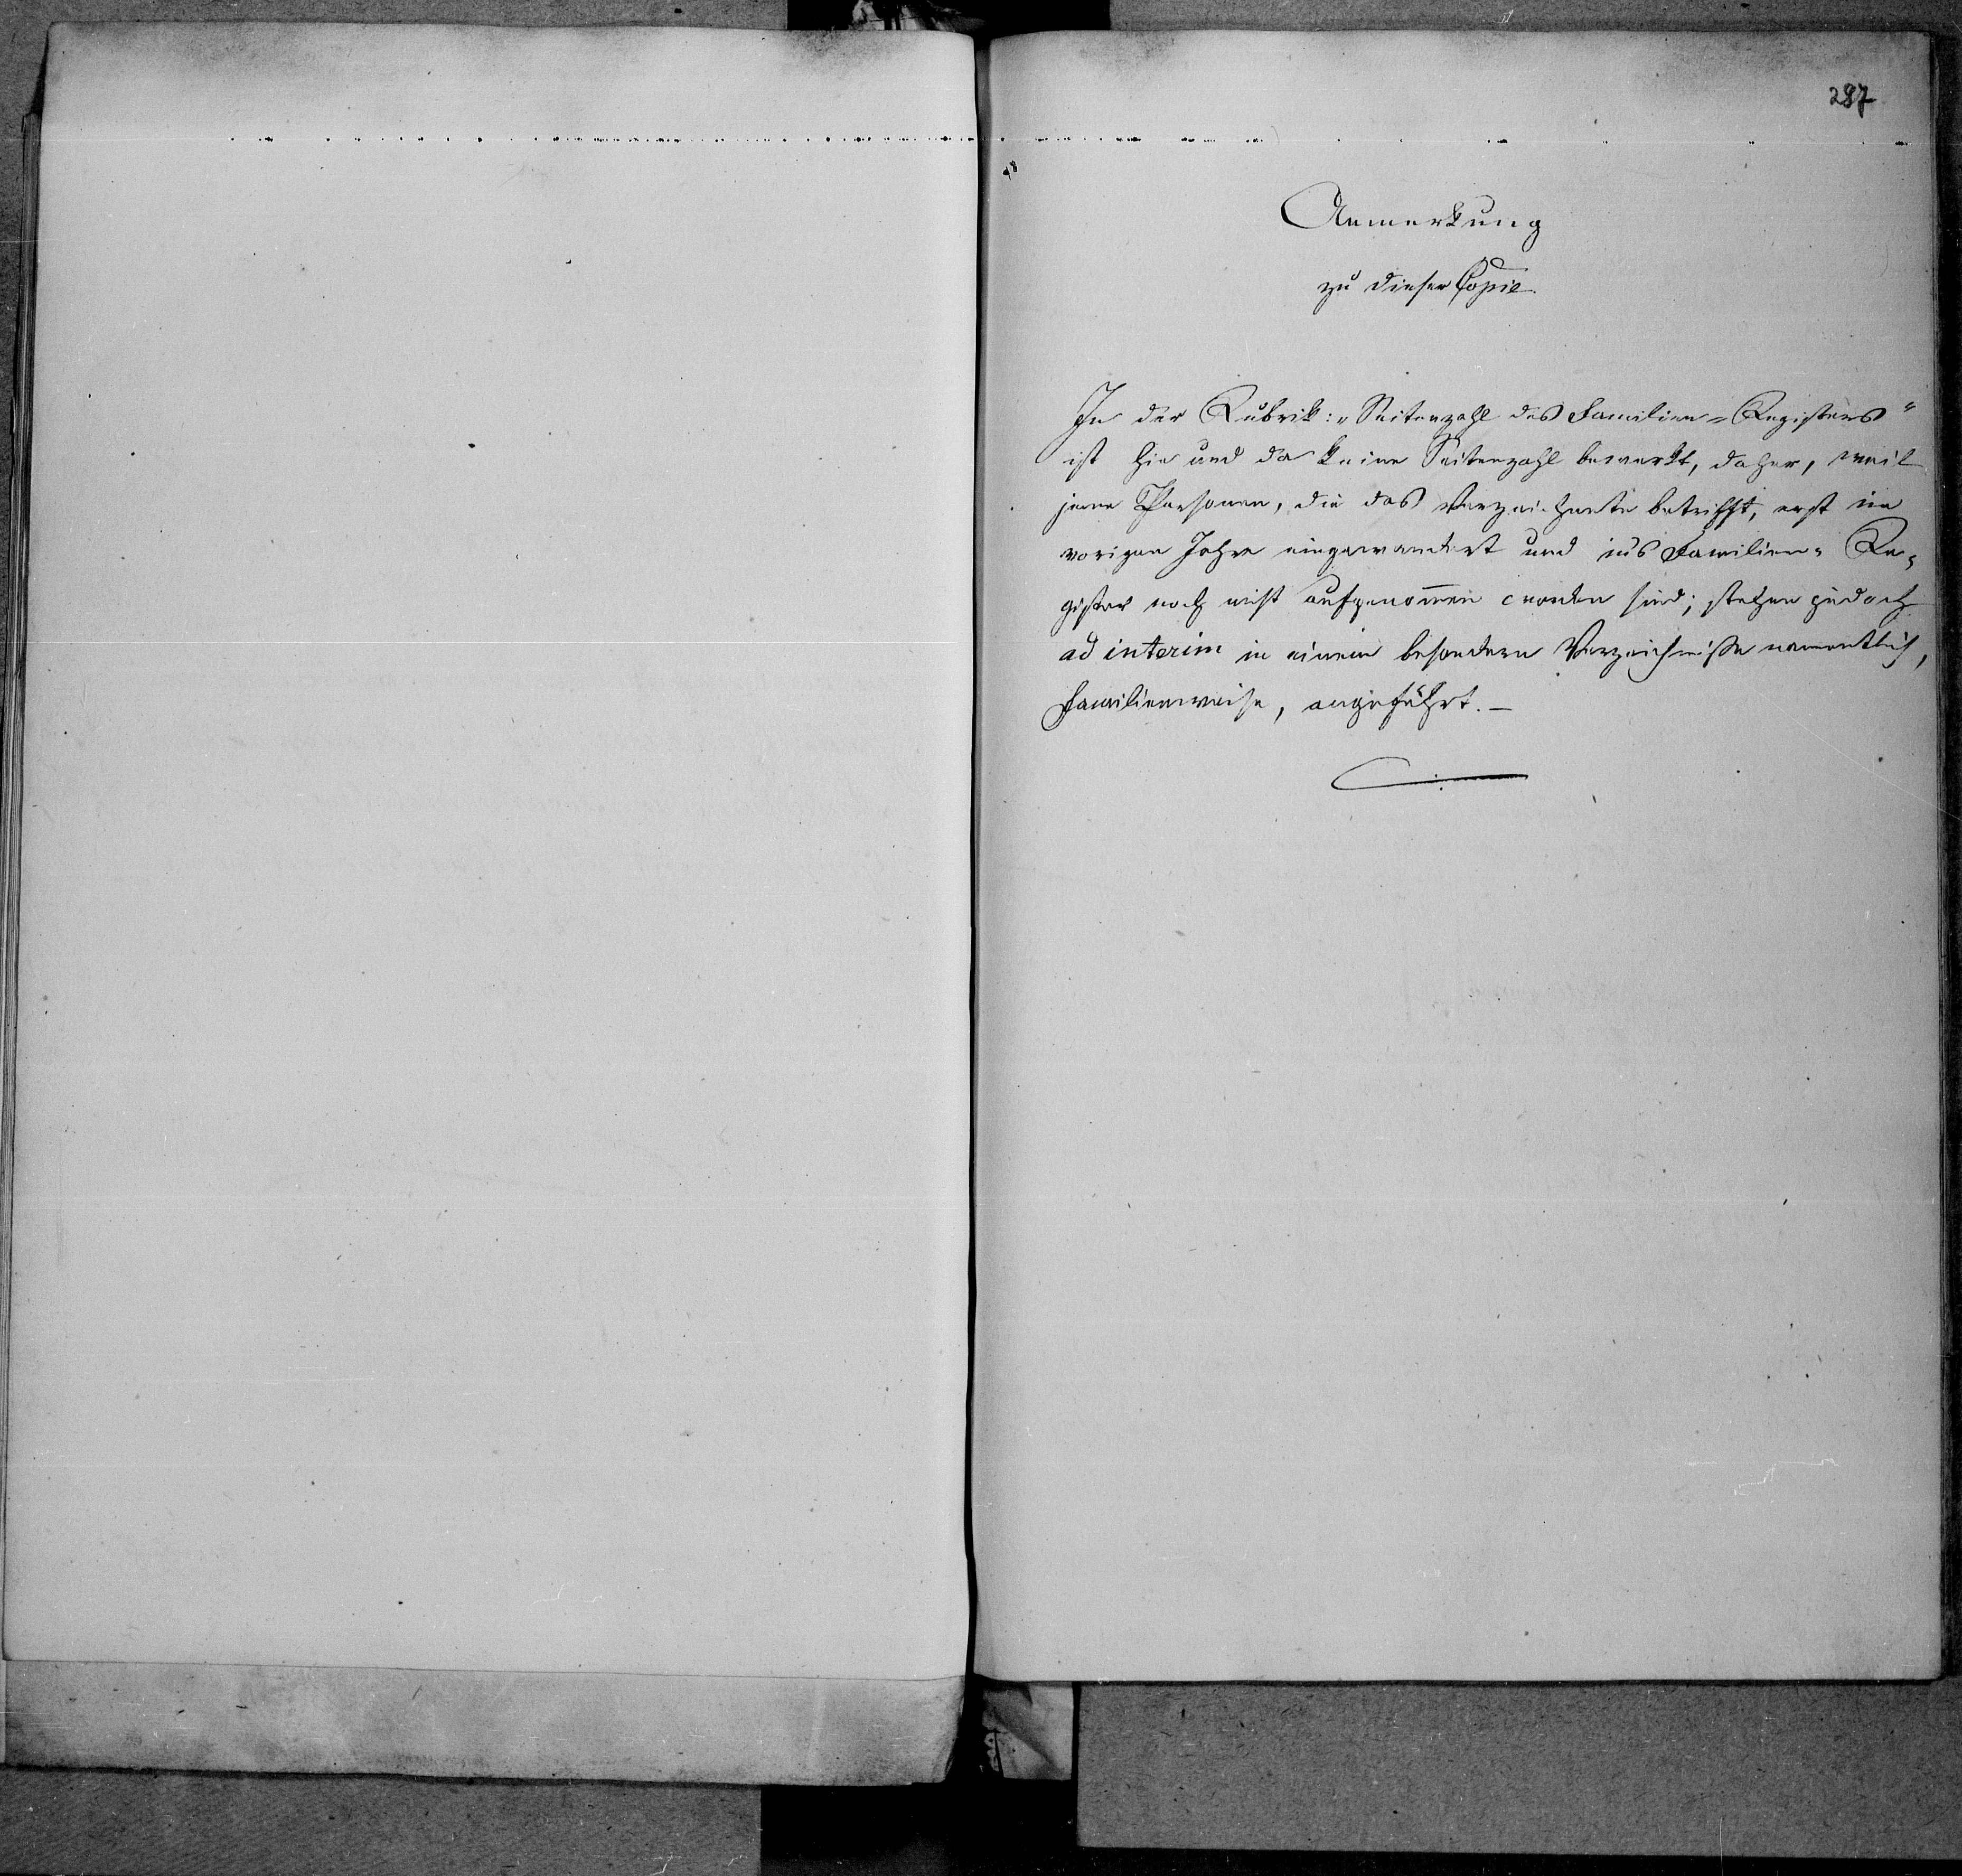 287
Anmerkung
zu dieser Copie.
In der Rubrik: „Seitenzahl des Familien=Registers“
ist hie und da keine Seitenzahl bemerkt, daher, weil
jene Personen, die das Verzeichnete betrifft, erst im
vorigen Jahre eingewandert und ins Familien= Re=
gister noch nicht aufgenom̅en worden sind; stehen jedoch
ad interim in einem besondern Verzeichnisse namentlich,
familienweise, angeführt. —